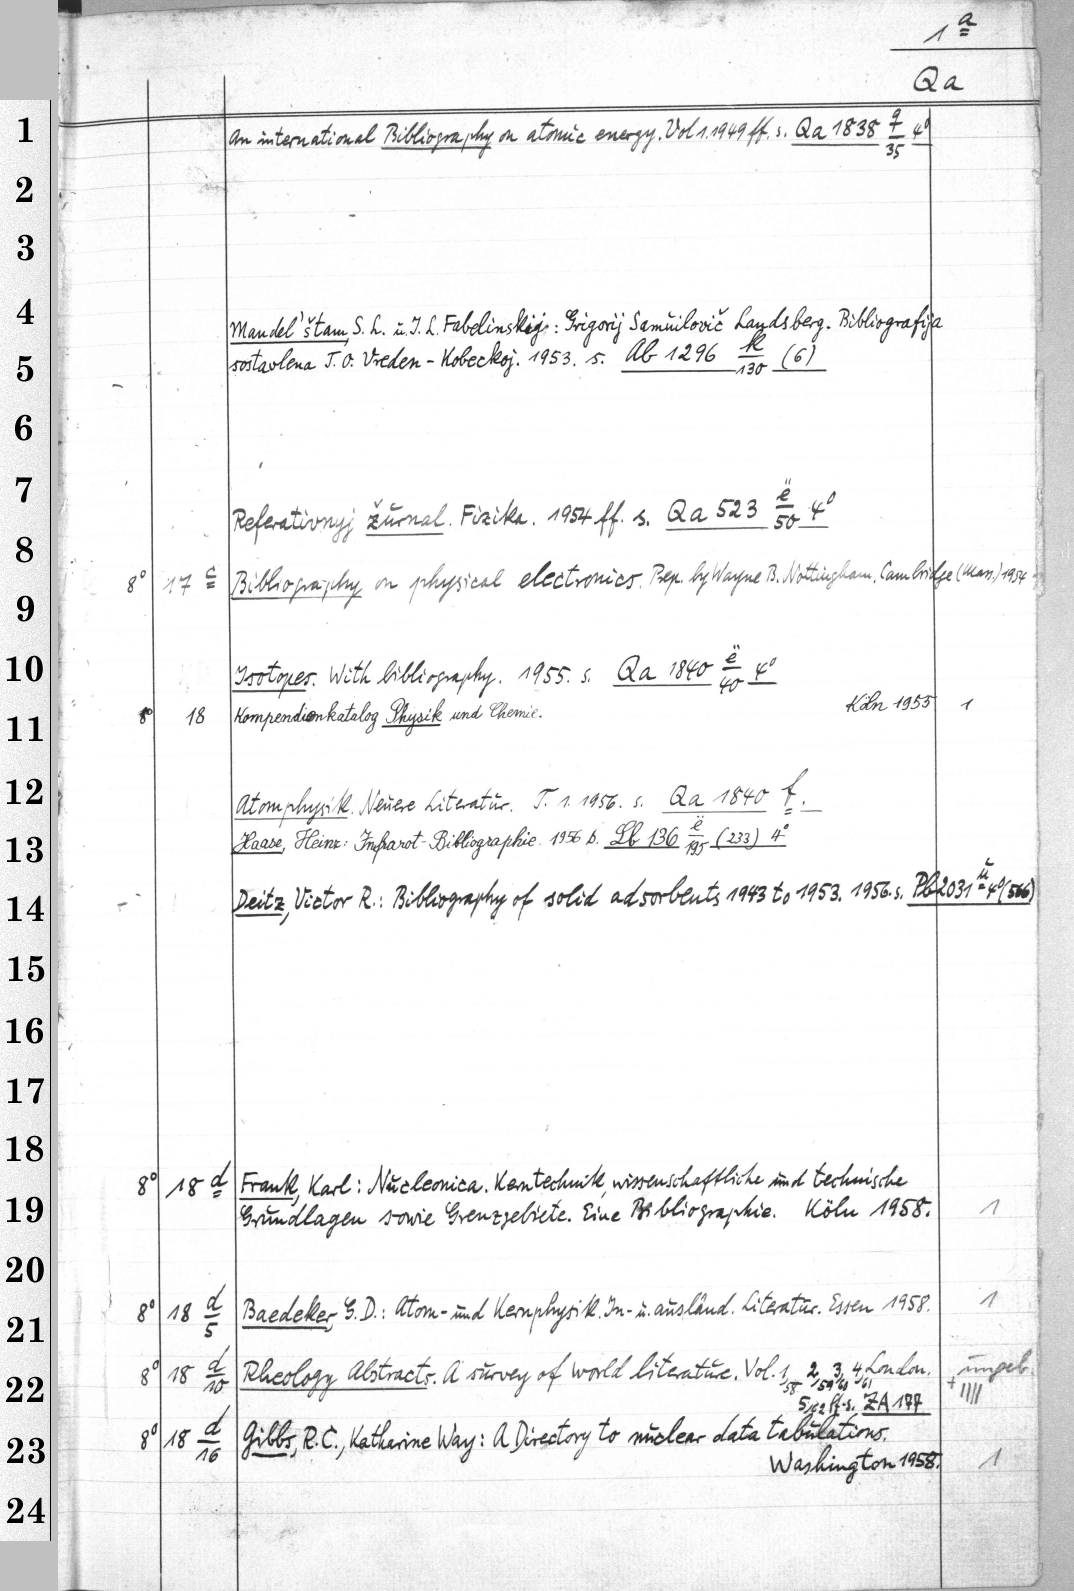 1 a
Qa
1 An international Bibliography on atomic energy. Vol 1.1949 ff. s. Qa 1838 q/35 4°
2
3
4 Mandel'štam, S. L. u. I. L. Fabelinskij: Grigorij Samuilovič Landsberg. Bibliografija
5 sostavlena T. O. Vreden-Kobeckoj. 1953. s. Ab 1296 k/130 (6)
6
7 Referativnyj žurnal. Fizika. 1954 ff. s. Qa 523 ë/50 4°
8
9 8° 17 c Bibliography on physical electronics. Prep. by Wayne B. Nottingham. Cambridge (Mass.) 1954
10 Isotopes. With bibliography. 1955. s. Qa 1840 ë/40 4°
11 8° 18 Kompendienkatalog Physik und Chemie. Köln 1955 1
12 Atomphysik. Neuere Literatur. T. 1. 1956. s. Qa 1840 f.
13 Haase, Heinz: Infrarot-Bibliographie. 1956 s. Lb 136 ë/195 (233) 4°
14 Deitz, Victor R.: Bibliography of solid adsorbents 1943 to 1953. 1956. s. Pb 2031 4° (566)
15
16
17
18
8° 18 d Frank, Karl: Nucleonica. Kerntechnik, wissenschaftliche und technische
19 Grundlagen sowie Grenzgebiete. Eine Bibliographie. Köln 1958. 1
20
21 8° 18 d/5 Baedeker, G. D.: Atom- und Kernphysik. In- u. ausländ. Literatur. Essen 1958. 1
22 8° 18 d/10 Rheology Abstracts. A survey of world literature. Vol. 1,/58 2,/59 3,/60 4,/61 London. ungeb.
5/62 ff. s. ZA 177 + ||||
23 8° 18 d/16 Gibbs, R. C., Katharine Way: A Directory to nuclear data tabulations.
Washington 1958. 1
24